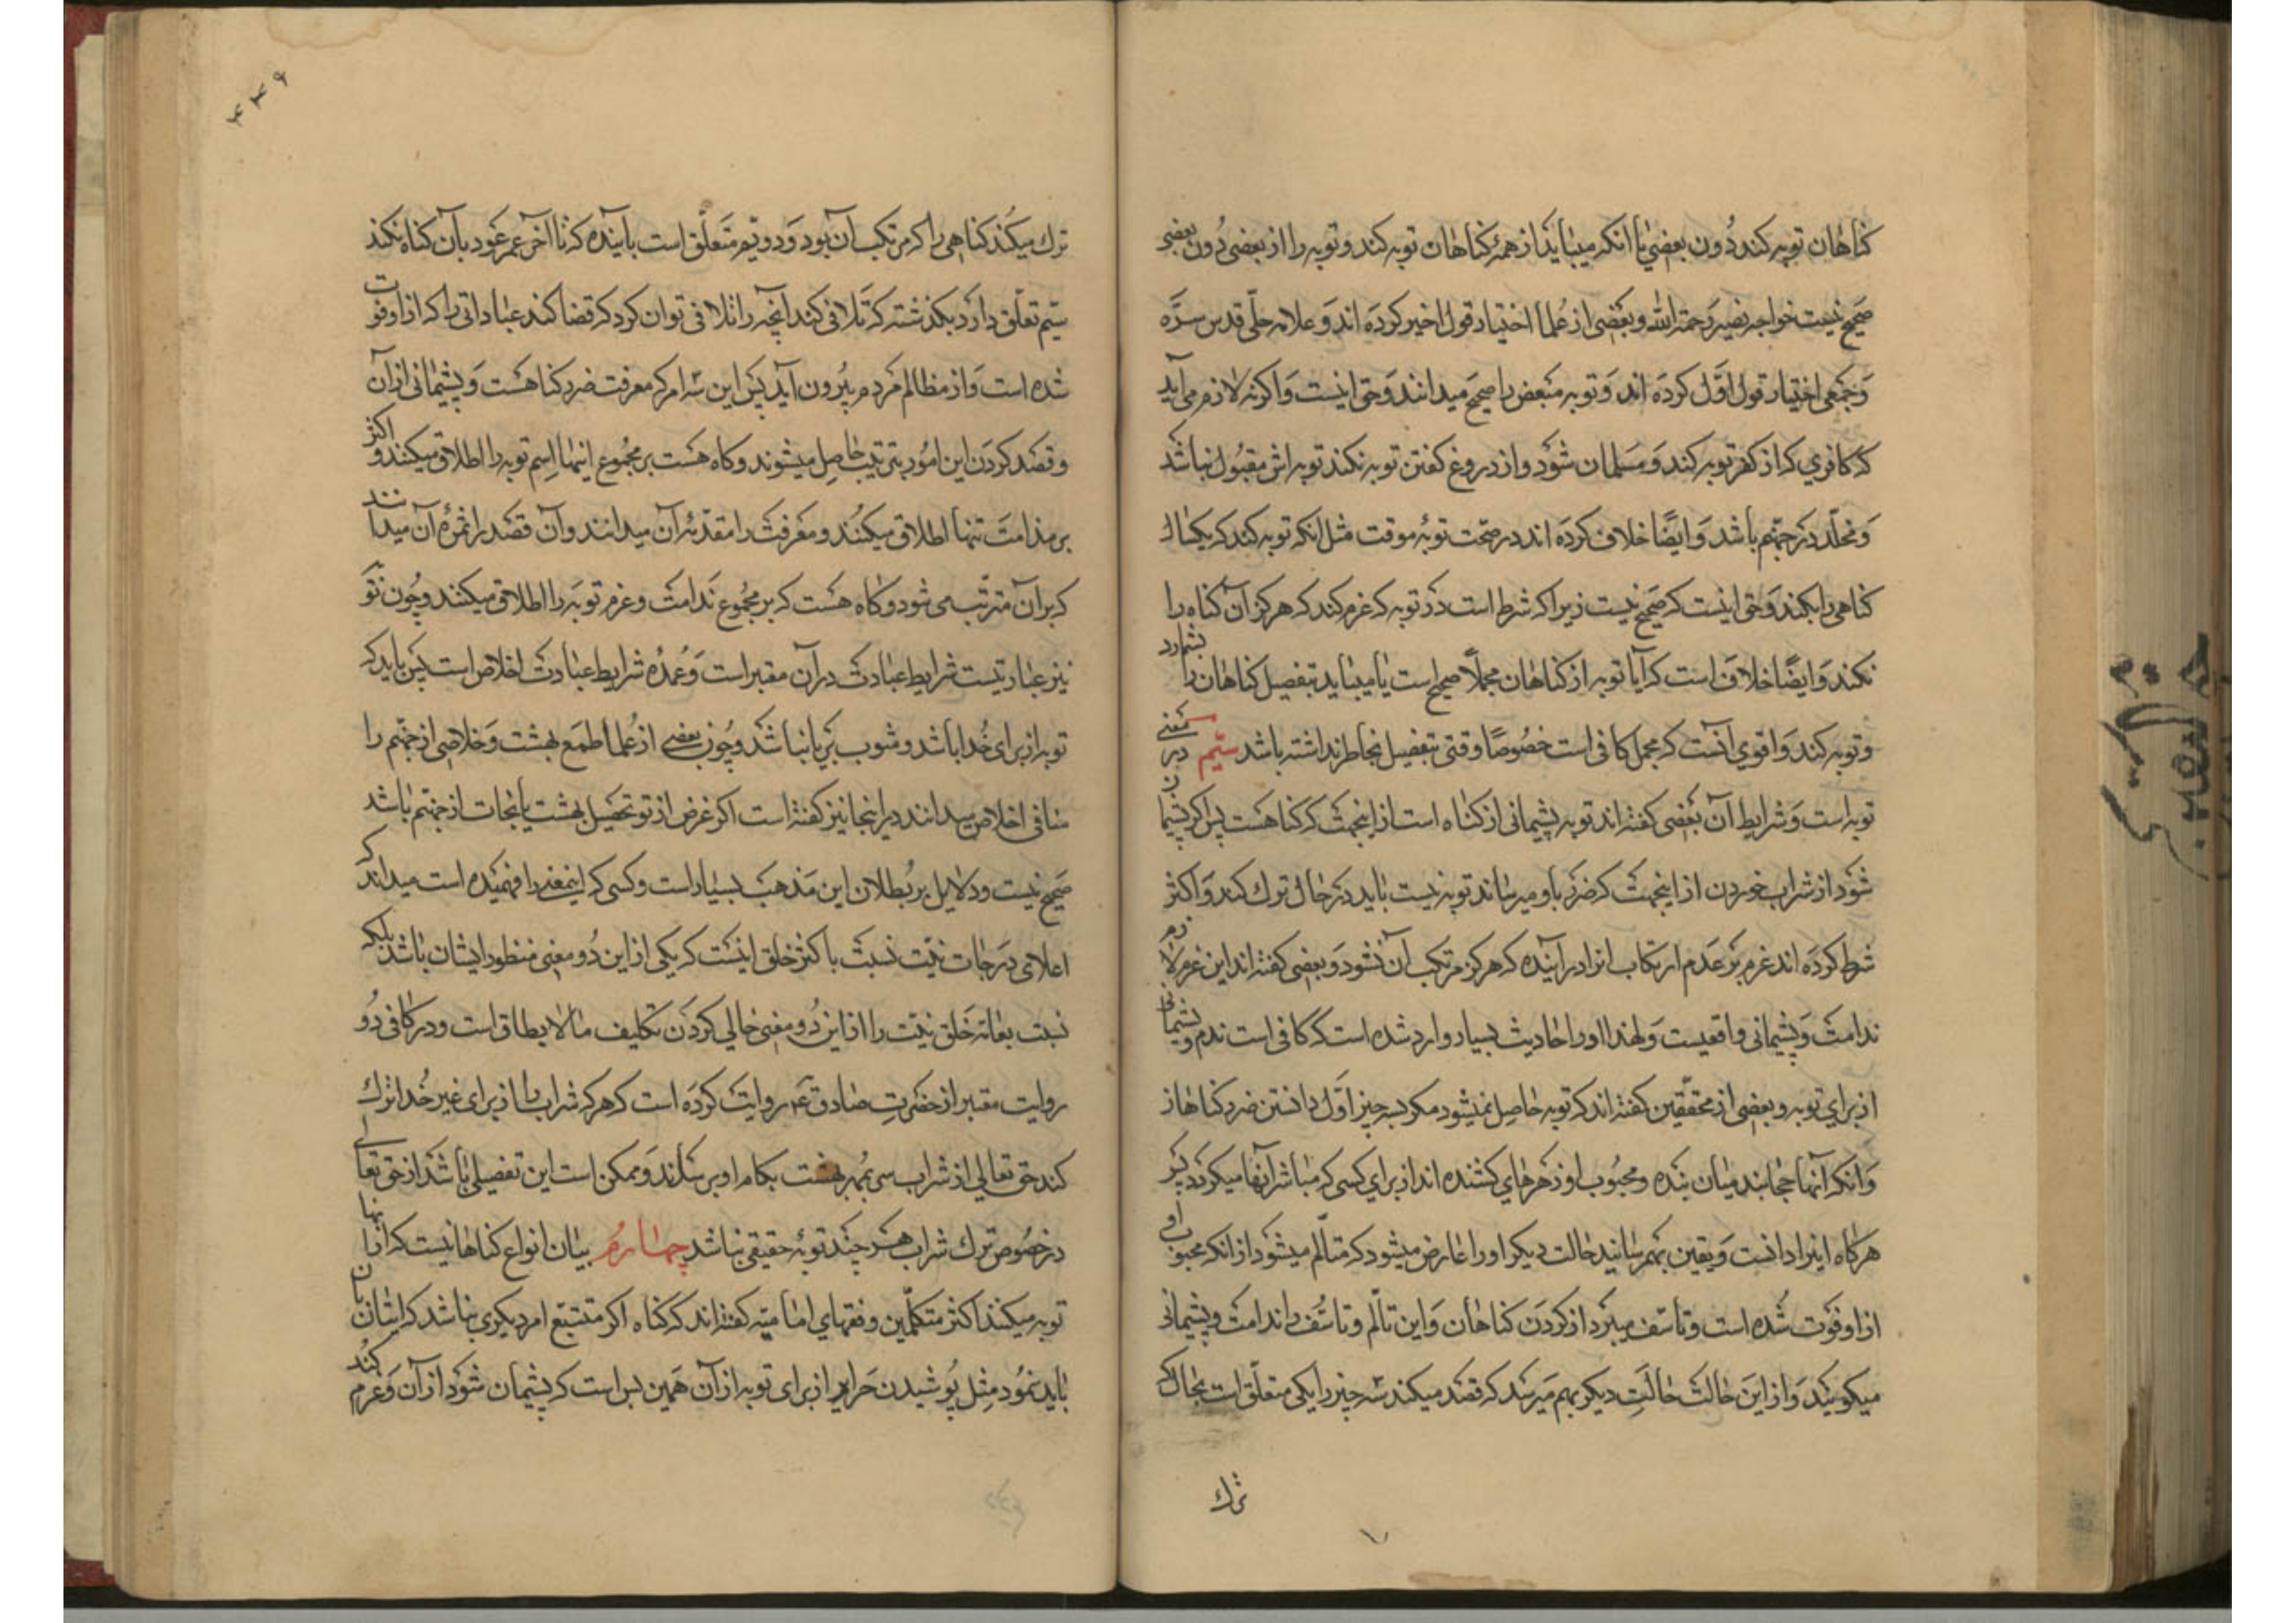 کناهان توبه کند دُون بعضی یا انکه میباید از همهٔ کناهان توبه کند و توبه را از بعضی دُون بعضی
صحیح نیست خواجه نصیر رحمة الله و بعضی از عُلما اختیار قول اخیر کرده اند و علامه حلّی قدس سرّه
و جمعی اختیار قول اوّل کرده اند و توبه مبعض را صحیح میدانند و حق اینست و اکرنه لازم می آید
که کافری که از کفر توبه کند و مسلمان شود و از دروغ کفتن توبه نکند توبه اش مقبول نباشد
و مخلّد در جهنّم باشد و ایضًا خلاف کرده اند در صحّت توبهٔ موقت مثل انکه توبه کند که یکسال
کناهی را نکند و حق اینست که صحیح نیست زیرا که شرط است در توبه که عزم کند که هرکز آن کناه را
نکند و ایضًا خلاف است که آیا توبه از کناهان مجملًا صحیح است یا میباید بتفصیل کناهان را بشمارد
و توبه کند و اقوی آنست که مجمل کافی است خصوصًا وقتی بتفصیل بخاطر نداشته باشد سیّم در معنی
توبه است و شرایط آن بعضی کفته اند توبه پشیمانی از کناه است از اینجهت که کناهست پس اکر پشیمان
شود از شراب خوردن از اینجهت که ضرر باو میرساند توبه نیست باید در حال ترك کند و اکثر
شرط کرده اند عزم بر عدم ارتکاب انرا در آینده که هرکز مرتکب آن نشود و بعضی کفته اند این عزم لازم
ندامت و پشیمانی واقعیست و لهذا در احادیث بسیار وارد شده است که کافی است ندم و پشیمانی
از برای توبه و بعضی از محققین کفته اند که توبه حاصل نمیشود مکر بسه چیز اوّل دانستن ضرر کناهان
و انکه آنها حجابند میان بنده و محبوب او و زهرهای کشنده اند از برای کسی که مباشر آنها میکردد پس
هرکاه اینرا دانست و یقین بهم رسانید حالت دیکر او را عارض میشود که متألّم میشود از انکه محبوب او
از او فوت شده است و تأسّف میبرد از کردن کناهان و این تألّم و تأسّف را ندامت و پشیمانی
میکویند و از این حالت حالت دیکر بهم میرسد که قصد میکند سه چیز را یکی متعلّق است بحال که
ترك
۴۳۹
ترك میکند کناهی را که مرتکب آن بود و دویّم متعلّق است بآینده که تا آخر عمر عود بآن کناه نکند
سیّم تعلّق دارد بکذشته که تلافی کند آنچه را تلافی توان کرد که قضا کند عباداتی را که از او فوت
شده است و از مظالم مردم بیرون آید پس این سه امر که معرفت ضرر کناهست و پشیمانی از آن
و قصد کردن این امور بترتیب حاصل میشوند و کاه هست بر مجموع اینها اسم توبه را اطلاق میکنند و اکثر
بر ندامت تنها اطلاق میکنند و معرفت را مقدّمهٔ آن میدانند و آن قصد را ثمرهٔ آن میدانند
که بر آن مترتّب می شود و کاه هست که بر مجموع ندامت و عزم توبه را اطلاق میکنند و چون توبه
نیز عبادتیست شرایط عبادت در آن معتبر است و عمدهٔ شرایط عبادت اخلاص است پس باید که
توبه از برای خُدا باشد و مشوب بریا نباشد و چون بعضی از عُلما طمع بهشت و خلاصی از جهنّم را
منافی اخلاص میدانند در اینجا نیز کفته است اکر غرض از تو تحصیل بهشت یا نجات از جهنّم باشد
صحیح نیست و دلایل بر بُطلان این مذهب بسیار است و کسی که اینمعنی را فهمیده است میداند که
اعلای درجات نیّت نسبت باکثر خلق اینست که یکی از این دُو معنی منظور ایشان باشد بلکه
نسبت بعامّه خلق نیّت را از این دُو معنی خالی کردن تکلیف مالا یطاق است و در کافی دُو
روایت معتبر از حضرت صادق ع روایت کرده است که هرکه شراب را از برای غیر خُدا ترك
کند حق تعالی از شراب سر بمهر بهشت بکام او برساند و ممکن است این تفضیلی باشد از حق تعالی
در خصوص ترك شراب هرچند توبهٔ حقیقی نباشد چهارم بیان انواع کناهانیست که از آنها
توبه میکنند اکثر متکلّمین و فقهای امامیّه کفته اند که کناه اکر متتبّع امر دیکری نباشد که ایشان بآن
باید نمود مثل پُوشیدن حریر از برای توبه از آن همین بس است که پشیمان شود از آن و عزم کند